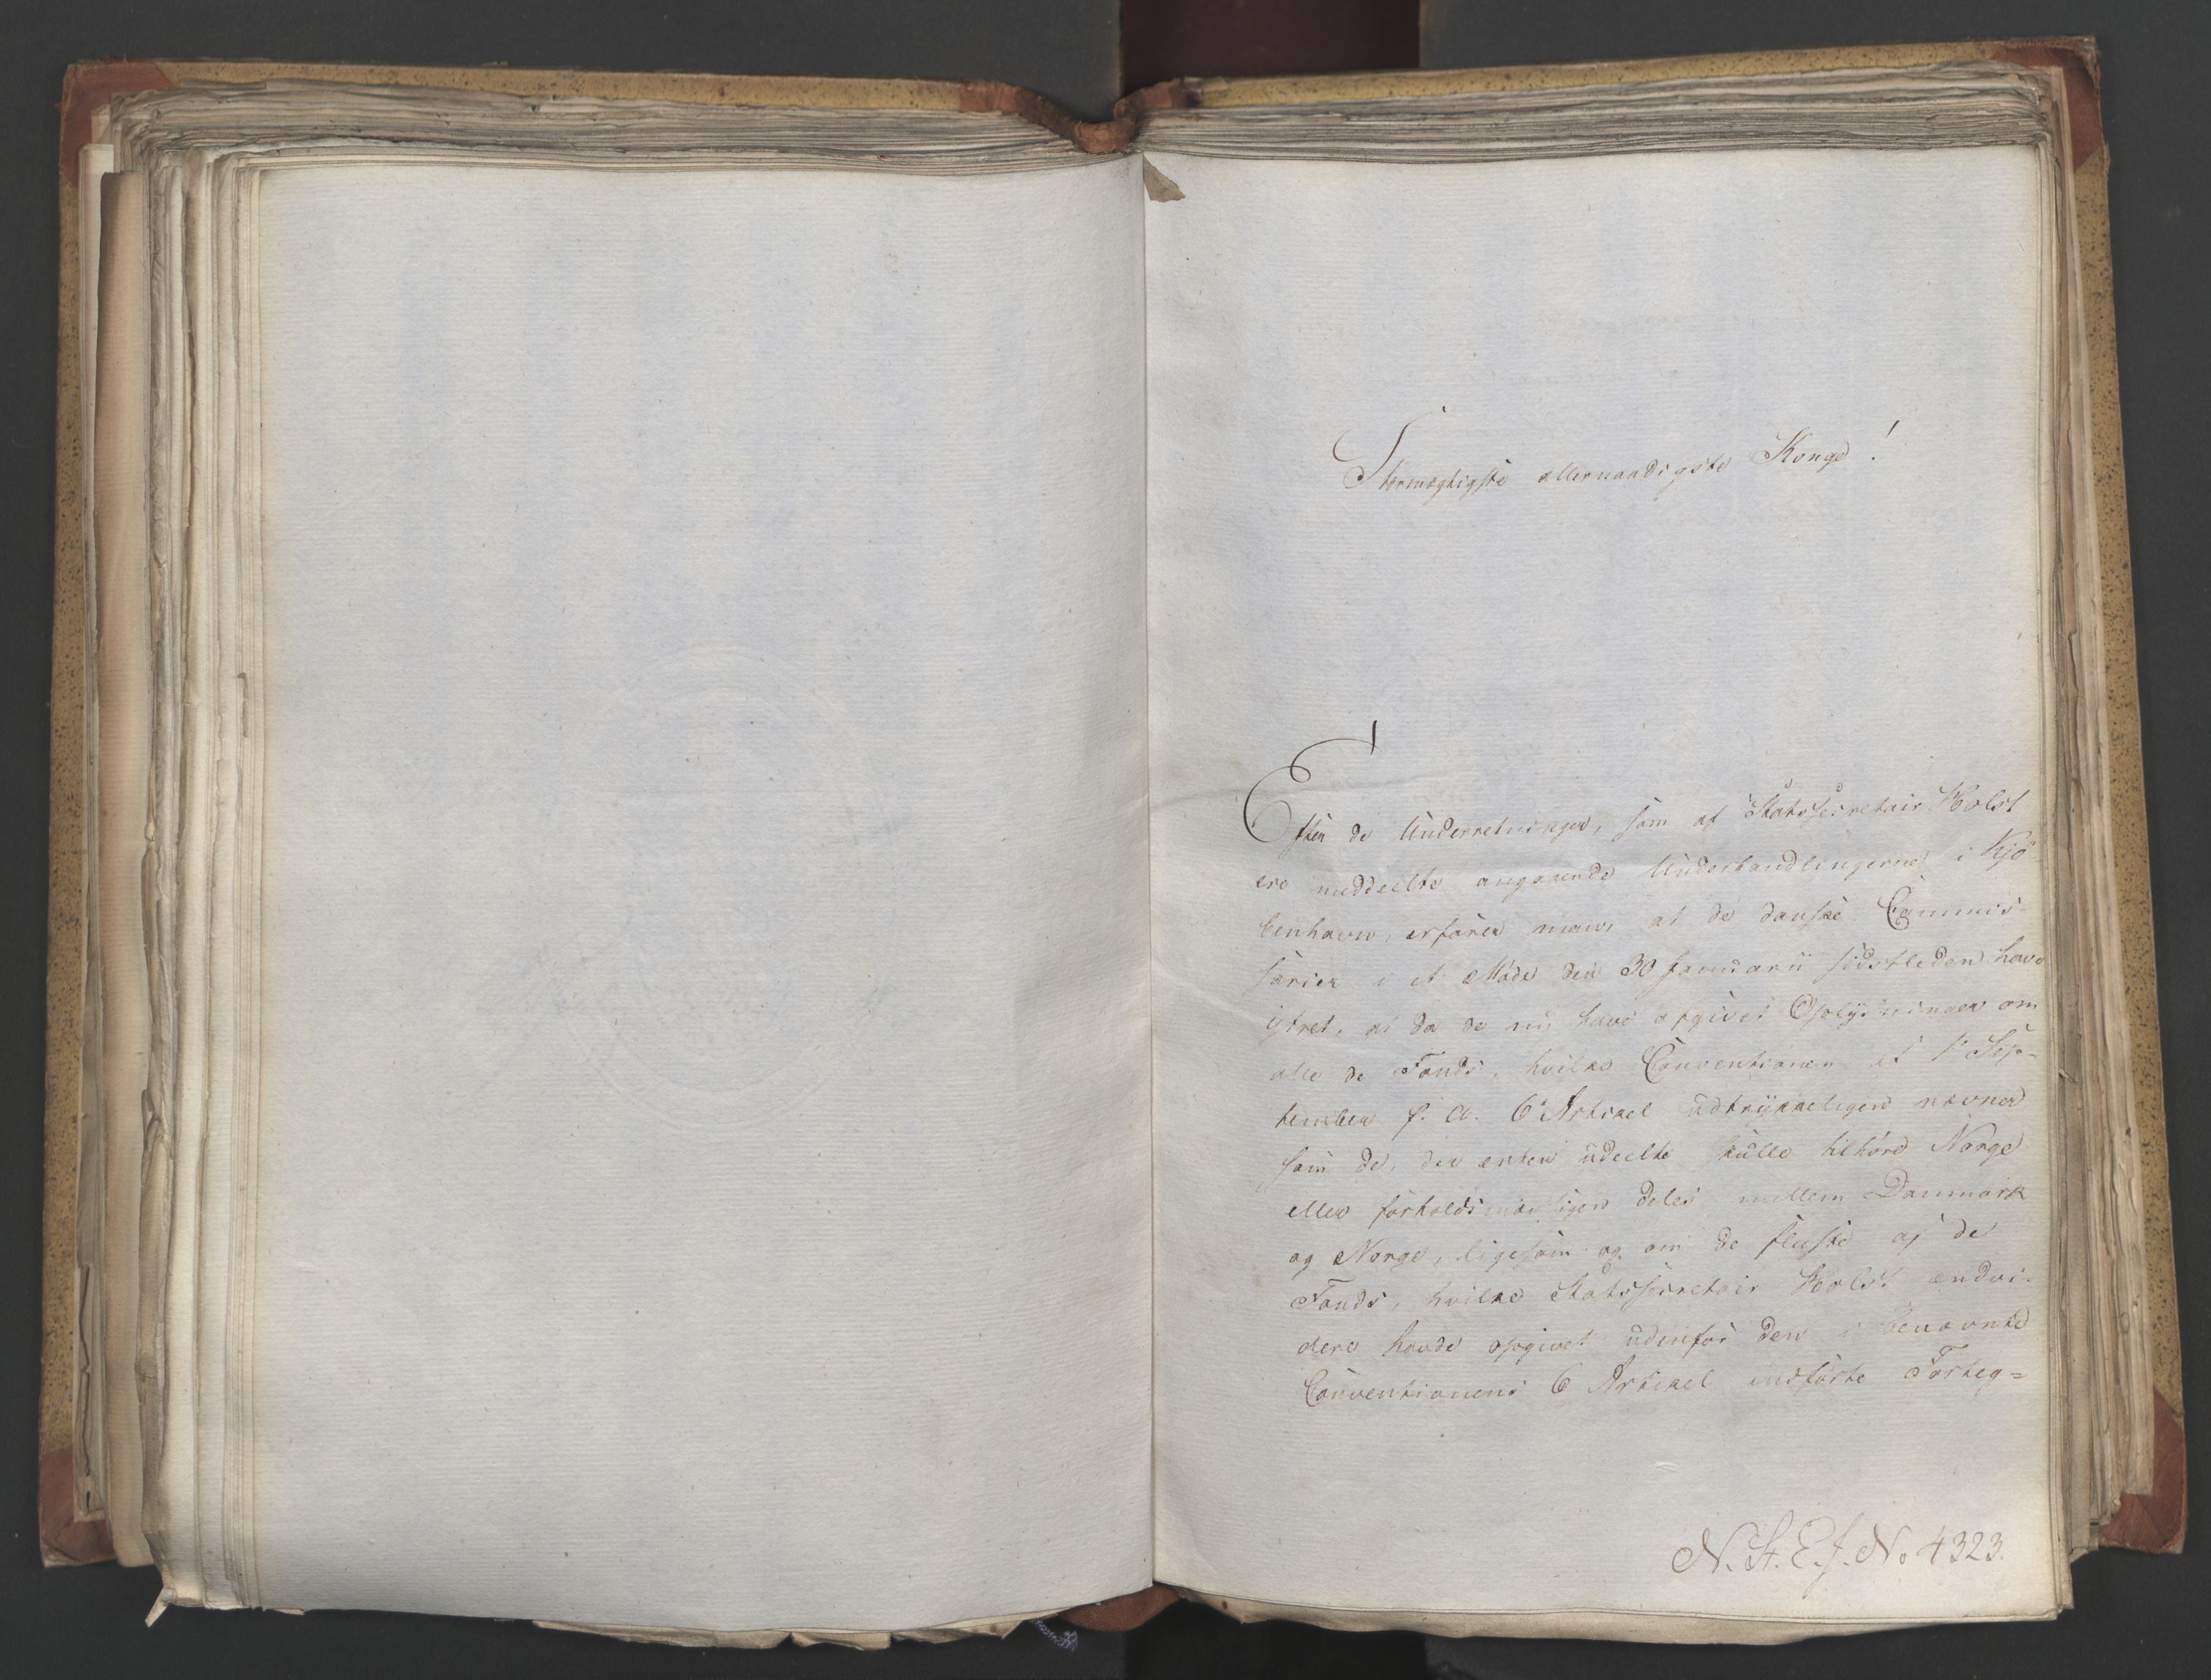 Stormægtigste allernaadigste Konge!
Efter de Underretninger, som af Statssecretair Holst
ere meddeelte angaaende Underhandlingerne i Kjö-
benhavn, erfarer man, at de danske Commis-
sarier i et Møde den 30 Januarii sidstleden have
yttret, at da de nu have opgivet Oplysninger om
alle de Fonds, hvilke Conventionen af 1e Sep-
tember f. A. 6e Artikel udtrykkeligen nævner
som de, der enten udeelte skulle tilhøre Norge
eller forholdsmæssigen deles mellem Danmark
og Norge, ligesom og om de fleste af de
Fonds, hvilke Statssecretair Holst endvi-
dere havde opgivet udenfor den i benævnte
Conventionens 6 Artikel indførte Forteg=
N. St. E. J. No 4323.